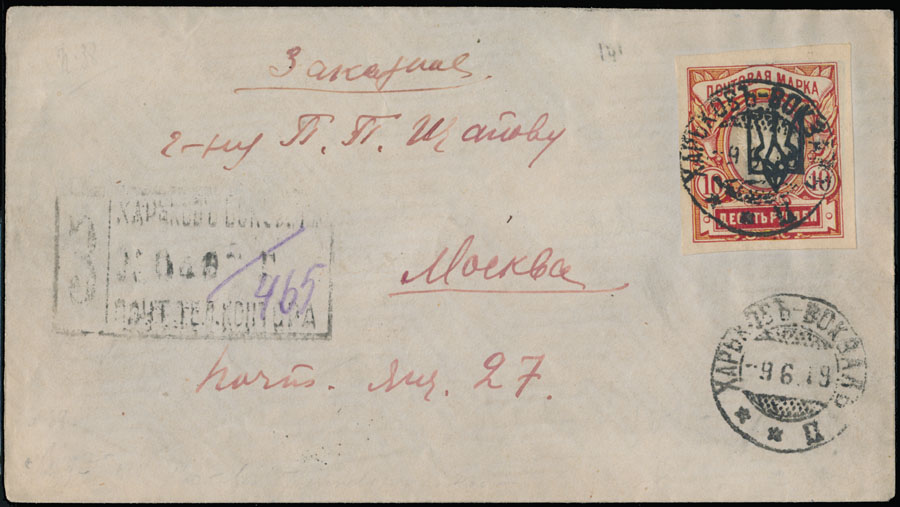 Заказное.
г-ну П. П. Щапову
Москва
почт. ящ. 27.
ПОЧТОВАЯ МАРКА
ХАРЬКОВЪ-ВОКЗАЛЪ
10 10
ДЕСЯТЬ РУБЛЕЙ
З
ХАРЬКОВЪ ВОКЗАЛЪ
465
ПОЧТ.ТЕЛ.КОНТОРА
ХАРЬКОВЪ-ВОКЗАЛЪ
-9 6 19
* * П